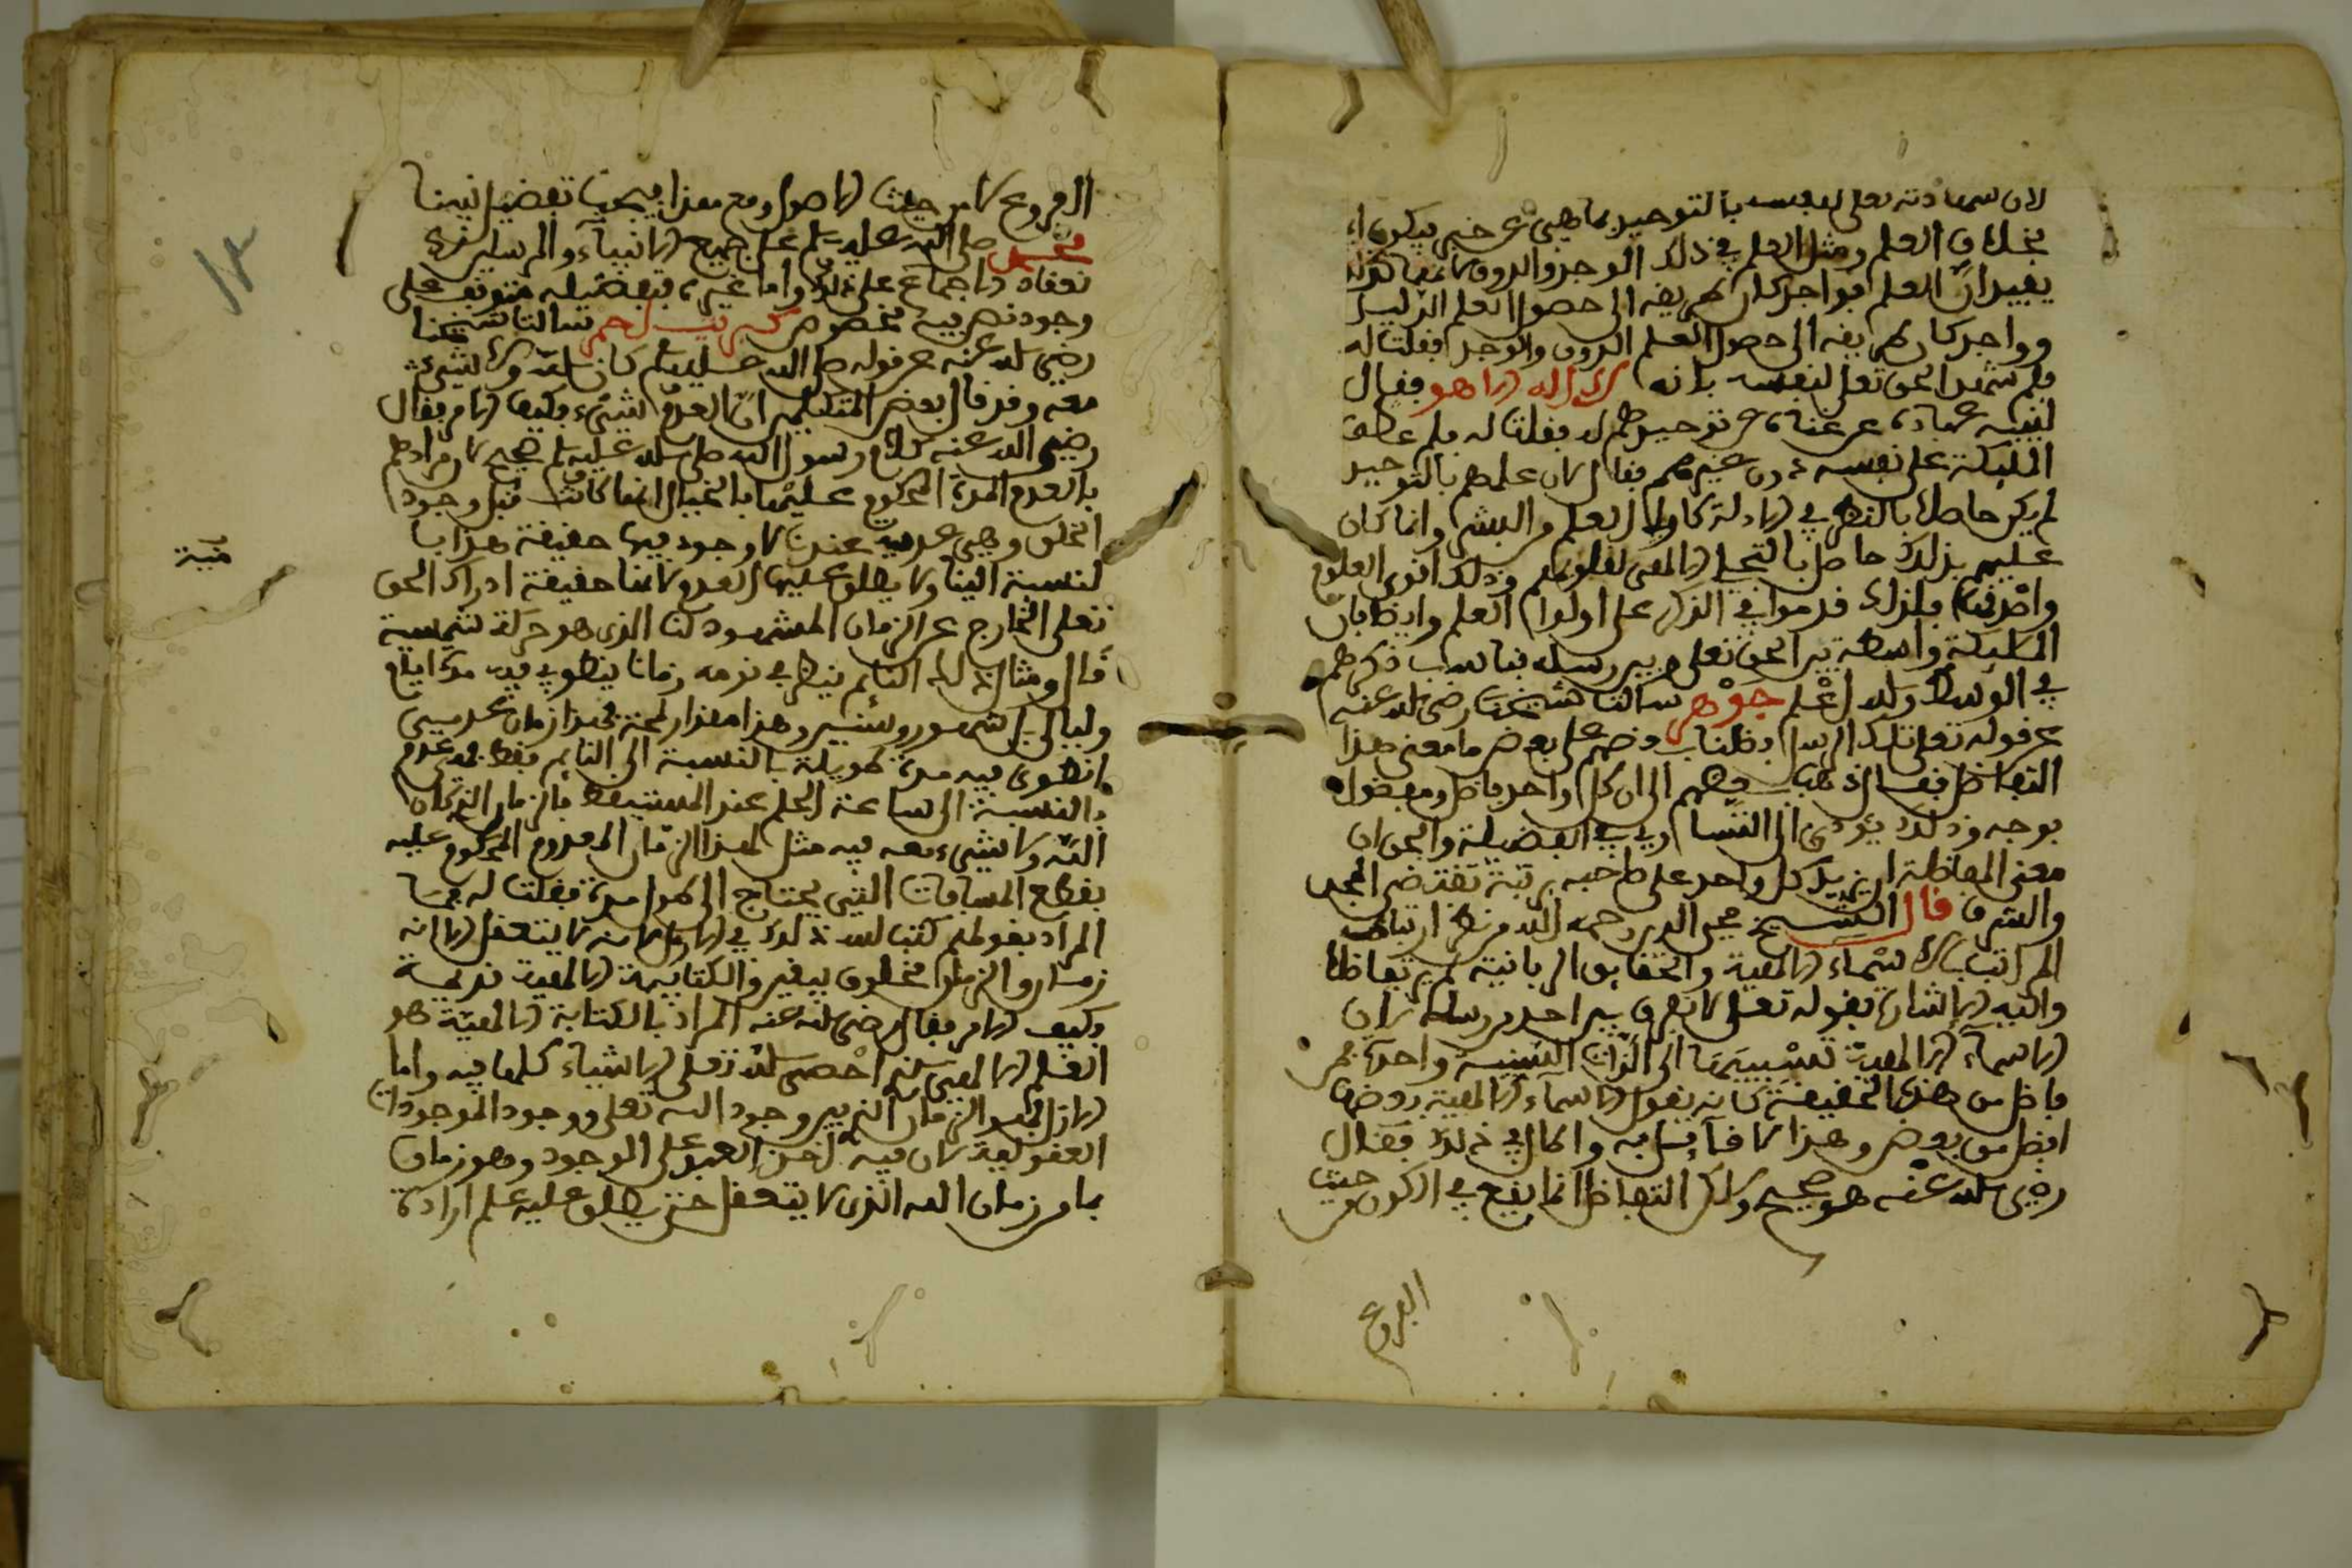 لان شهادته تعلى لنفسه بالتوحيد ماهي عن خبر فيكون ا
بخلاف العلم ومثل العلم في ذلك الوجد والذوق لانها
يفيد ان العلم فواحد كان طريقه الى حصول العلم الدليل
وواحد كان طريقه الى حصول العلم الذوق والوجد فقلت له
فلم شهد الحق تعلى لنفسه بانه لا اله الا هو فقال
لينبه عباده عن غناه عن توحيدهم له فقلت له فلم عطف
المليكة على نفسه دون غيرهم فقال لان علمهم بالتوحيد
لم يكن حاصلا بالنظر في الادلة كاولي العلم والبشر وانما كان
علمهم بذلك حاصل بالتجلي الالهي لقلوبهم وذلك اقوى العلوم
واصدقها فلذلك قدموا في الذكر على اولوا العلم وايضا بان
المليكة واسطة بين الحق تعلى وبين رسله فناسب ذكرهم
في الوسط والله اعلم جوهر سالت شيخنا رضي الله عنه
عن قوله تعلى تلك الرسل فضلنا بعضهم على بعض ما معنى هذا
التفاضل فقال ذهب بعضهم الى ان كل واحد فاضل ومفضول
بوجه وذلك يودي الى التساوي في الفضيلة والحق ان
معنى المفاضلة ان يزيد كل واحد على صاحبه برتبة تقتضي المجد
والشرف قال الشيخ محي الدين رحمه الله من نظر ارتباط
المراتب بالاسماء الالهية والحقايق الربانية لم ير تفاضلا
واليه الاشارة بقوله تعلى لا نفرق بين احد من رسله لان
الاسماء الالهية نسبتها الى الذات النسبية واحدة فمن
فاضل من هذه الحقيقة كانه يقول الاسماء الالهية بعضها
افضل من بعض وهذا لا قايل به والحال في ذلك فقال
رضي الله عنه هو صحيح ولاكن التفاضل انما يقع في الاكوان من حيث
الفروع
الفروع لا من حيث الاصول ومع هذا فيجب تفضيل نبينا
محمد صلى الله عليه وسلم على جميع الانبياء والمرسلين
الاجماع على ذلك واما غيره فتفضيله متوقف على
وجود نص فيه بخصوص كبريت احمر سالت شيخنا
رضي الله عنه عن قوله صلى الله عليه وسلم كان الله ولا شيء
معه وقد قال بعض المتكلمين ان العدم شيء فكيف الامر فقال
رضي الله عنه كلام رسول الله صلى الله عليه وسلم صحيح لان مرادهم
بالعدم المدة المحكوم عليها بالخيال انها كانت قبل وجود
الخلق وهي عدمية عندنا لا وجود فيها حقيقة هذا با
لنسبة الينا ولا يطلق عليها العدم لانها حقيقة ادراك الحق
تعلى الخارج عن الزمان المشهود لنا الذي هو حركة شمسية
قال ومثال ذلك النائم ينظر في نومه زمانا ينطوي فيه مدة ايام
وليالي بل شهور وسنين وهذا مقدار لمحة فهذا زمان عدمي
انطوى فيه مدة طويلة بالنسبة الى النايم فقط وهو عدم
بالنسبة الى ساعة الحلم عند المستيقظ فالزمان الذي كان
الله ولا شيء معه فيه مثل هذا الزمان المعدوم المحكوم عليه
بقطع المسافات التي يحتاج الى طول مدة فقلت له فما
المراد بقولهم كتب الله ذلك في الازل لانه لا يتعقل الا انه
زمان والزمان مخلوق ليقين والكتابية الالهية قديمة
وكيف الامر فقال رضي الله عنه المراد بالكتابة الالهية هو
العلم الالهي الذي احصى الله تعلى الاشياء كلها فيه واما
الازل فهو الزمان الذي بين وجود الله تعلى ووجود الموجودات
العقولية لان فيه اخذ العهد على الوجود وهو زمان
بما من زمان الله الذي لا يتعقل حتى يطلق عليه علم ارادة